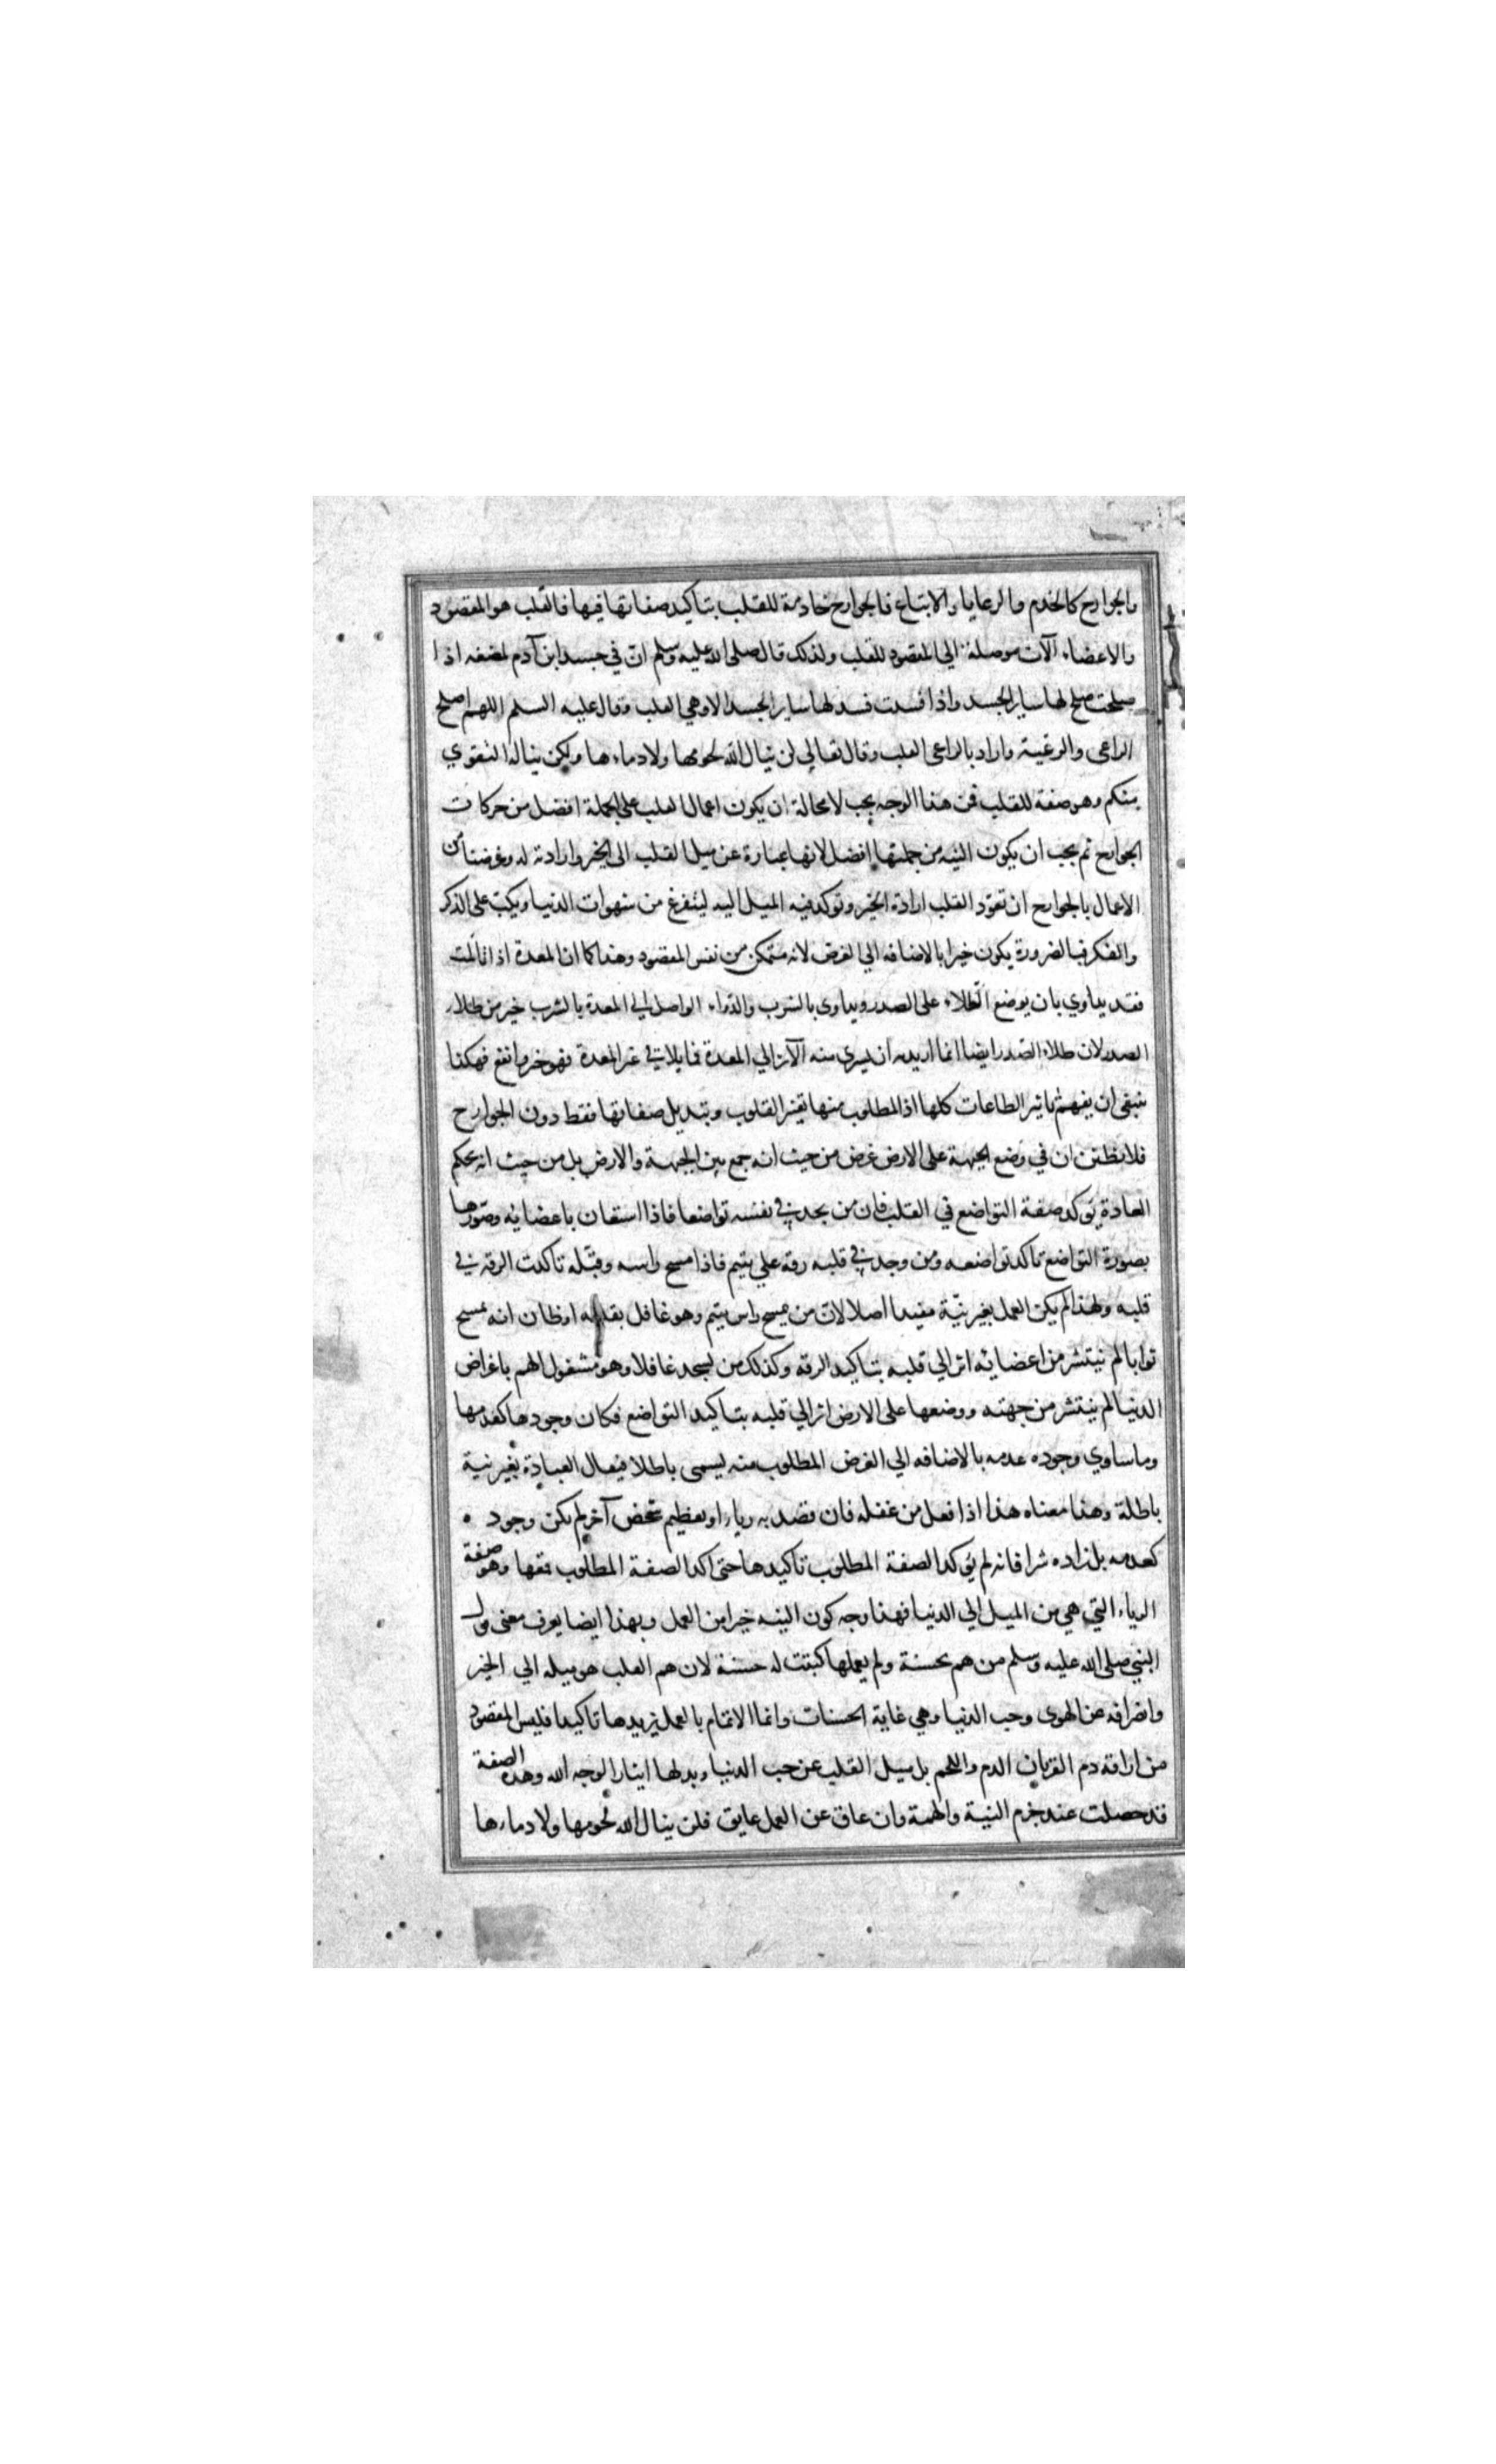 والجوارح كالخدم والرعايا والاتباع فالجوارح خادمة للقلب بتاكيد صفاتها فيها فالقلب هو المقصود
والاعضاء آلات موصلة الي المقصود للقلب ولذلك قال صلى الله عليه وسلم ان في جسد ابن آدم لمضغه اذا
صلحت صلح لها ساير الجسد واذا فسدت فسد لها ساير الجسد الا وهي القلب وقال عليه السلم اللهم اصلح
الراعى والرعية واراد بالراعى القلب وقال تعالي لن ينال الله لحومها ولا دماءها ولكن يناله التقوي
منكم وهو صفة للقلب فمن هذا الوجه يجب لا محالة ان يكون اعمال القلب على الجملة افضل من حركات
الجوارح ثم يجب ان يكون النيه من جملتها افضل لانها عبارة عن ميل القلب الى الخير وارادته له وغرضنا من
الاعمال بالجوارح ان تعوّد القلب ارادة الخير وتوكد فيه الميل اليه ليتفرغ من شهوات الدنيا ويكبّ على الذكر
والفكر فبالضرورة يكون خيرا بالاضافه الي الغرض لانه متمكن من نفس المقصود وهذا كما ان المعدة اذا تالمت
فقد يداوي بان يوضع الطلاء على الصدر ويداوى بالشرب والدواء الواصل الي المعدة بالشرب خير من طلاء
الصدر لان طلاء الصدر ايضا انما اريد به ان يسرى منه الاثر الي المعدة فما يلاقي عين المعدة فهو خير وانفع فهكذا
ينبغى ان يفهم تاثير الطاعات كلها اذ المطلوب منها تغير القلوب وتبديل صفاتها فقط دون الجوارح
فلا تظنن ان في وضع الجبهة على الارض غرض من حيث انه جمع بين الجبهة والارض بل من حيث انه بحكم
العادة يؤكد صفة التواضع في القلب فان من يجد في نفسه تواضعا فاذا استعان باعضائه وصورها
بصورة التواضع تاكد تواضعه ومن وجد في قلبه رقة علي يتيم فاذا مسح راسه وقبّله تاكدت الرقة في
قلبه ولهذا لم يكن العمل بغير نيّة مفيدا اصلا لان من يمسح راس يتيم وهو غافل بقلبه او ظان انه يمسح
ثوبا لم ينتشر من اعضائه اثر الي قلبه بتاكيد الرقه وكذلك من يسجد غافلا وهو مشغول الهم باغراض
الدنيا لم ينتشر من جبهته ووضعها على الارض اثر الي قلبه بتاكيد التواضع فكان وجودها كعدمها
وما ساوي وجوده عدمه بالاضافه الي الغرض المطلوب منه يسمى باطلا فيقال العبادة بغير نية
باطلة وهذا معناه هذا اذا فعل من غفله فان قصد به رياء او تعظيم شخص آخر لم يكن وجوده
كعدمه بل زاده شرا فانه لم يؤكد الصفة المطلوب تاكيدها حتى اكد الصفة المطلوب قمعها وهو صفة
الرياء التي هي من الميل الي الدنيا فهذا وجه كون النيه خيرا من العمل وبهذا ايضا يعرف معنى قول
النبي صلى الله عليه وسلم من هم بحسنة ولم يعملها كتبت له حسنة لان هم القلب هو ميله الي الخير
وانصرافه عن الهوى وحب الدنيا وهي غاية الحسنات وانما الاتمام بالعمل يزيدها تاكيدا فليس المقصود
من اراقة دم القربان الدم واللحم بل ميل القلب عن حب الدنيا وبدلها ايثارا لوجه الله وهذه الصفة
قد حصلت عند جزم النية والهمة وان عاق عن العمل عايق فلن ينال الله لحومها ولا دماءها